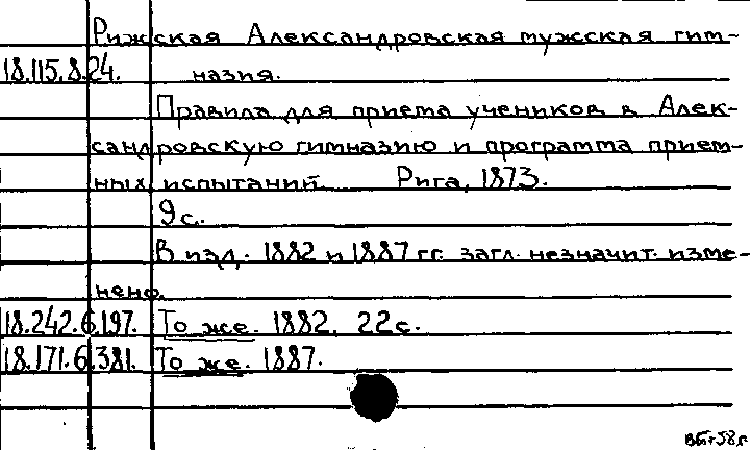 Рижская Александровская мужская гим-
18.115.8.24. назия.
Правила для приема учеников в Алек-
сандровскую гимназию и программа прием-
ных испытаний. Рига, 1873.
9 с.
В изд. 1882 и 1887 гг. загл. незначит. изме-
нено.
18.242.6.197. То же. 1882. 22 с.
18.171.6.381. То же. 1887.